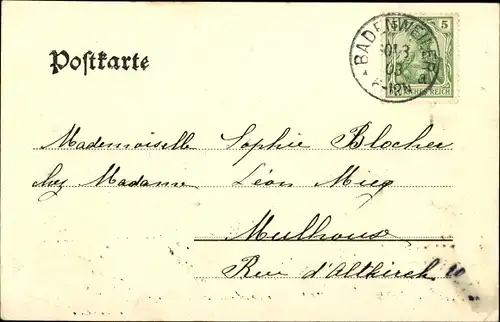 Postkarte
BADENWEILER
03
6-12N
5
REICH
Mademoiselle Sophie Blocher
chez Madame Léon Mieg
Mulhouse
Rue d'Altkirch